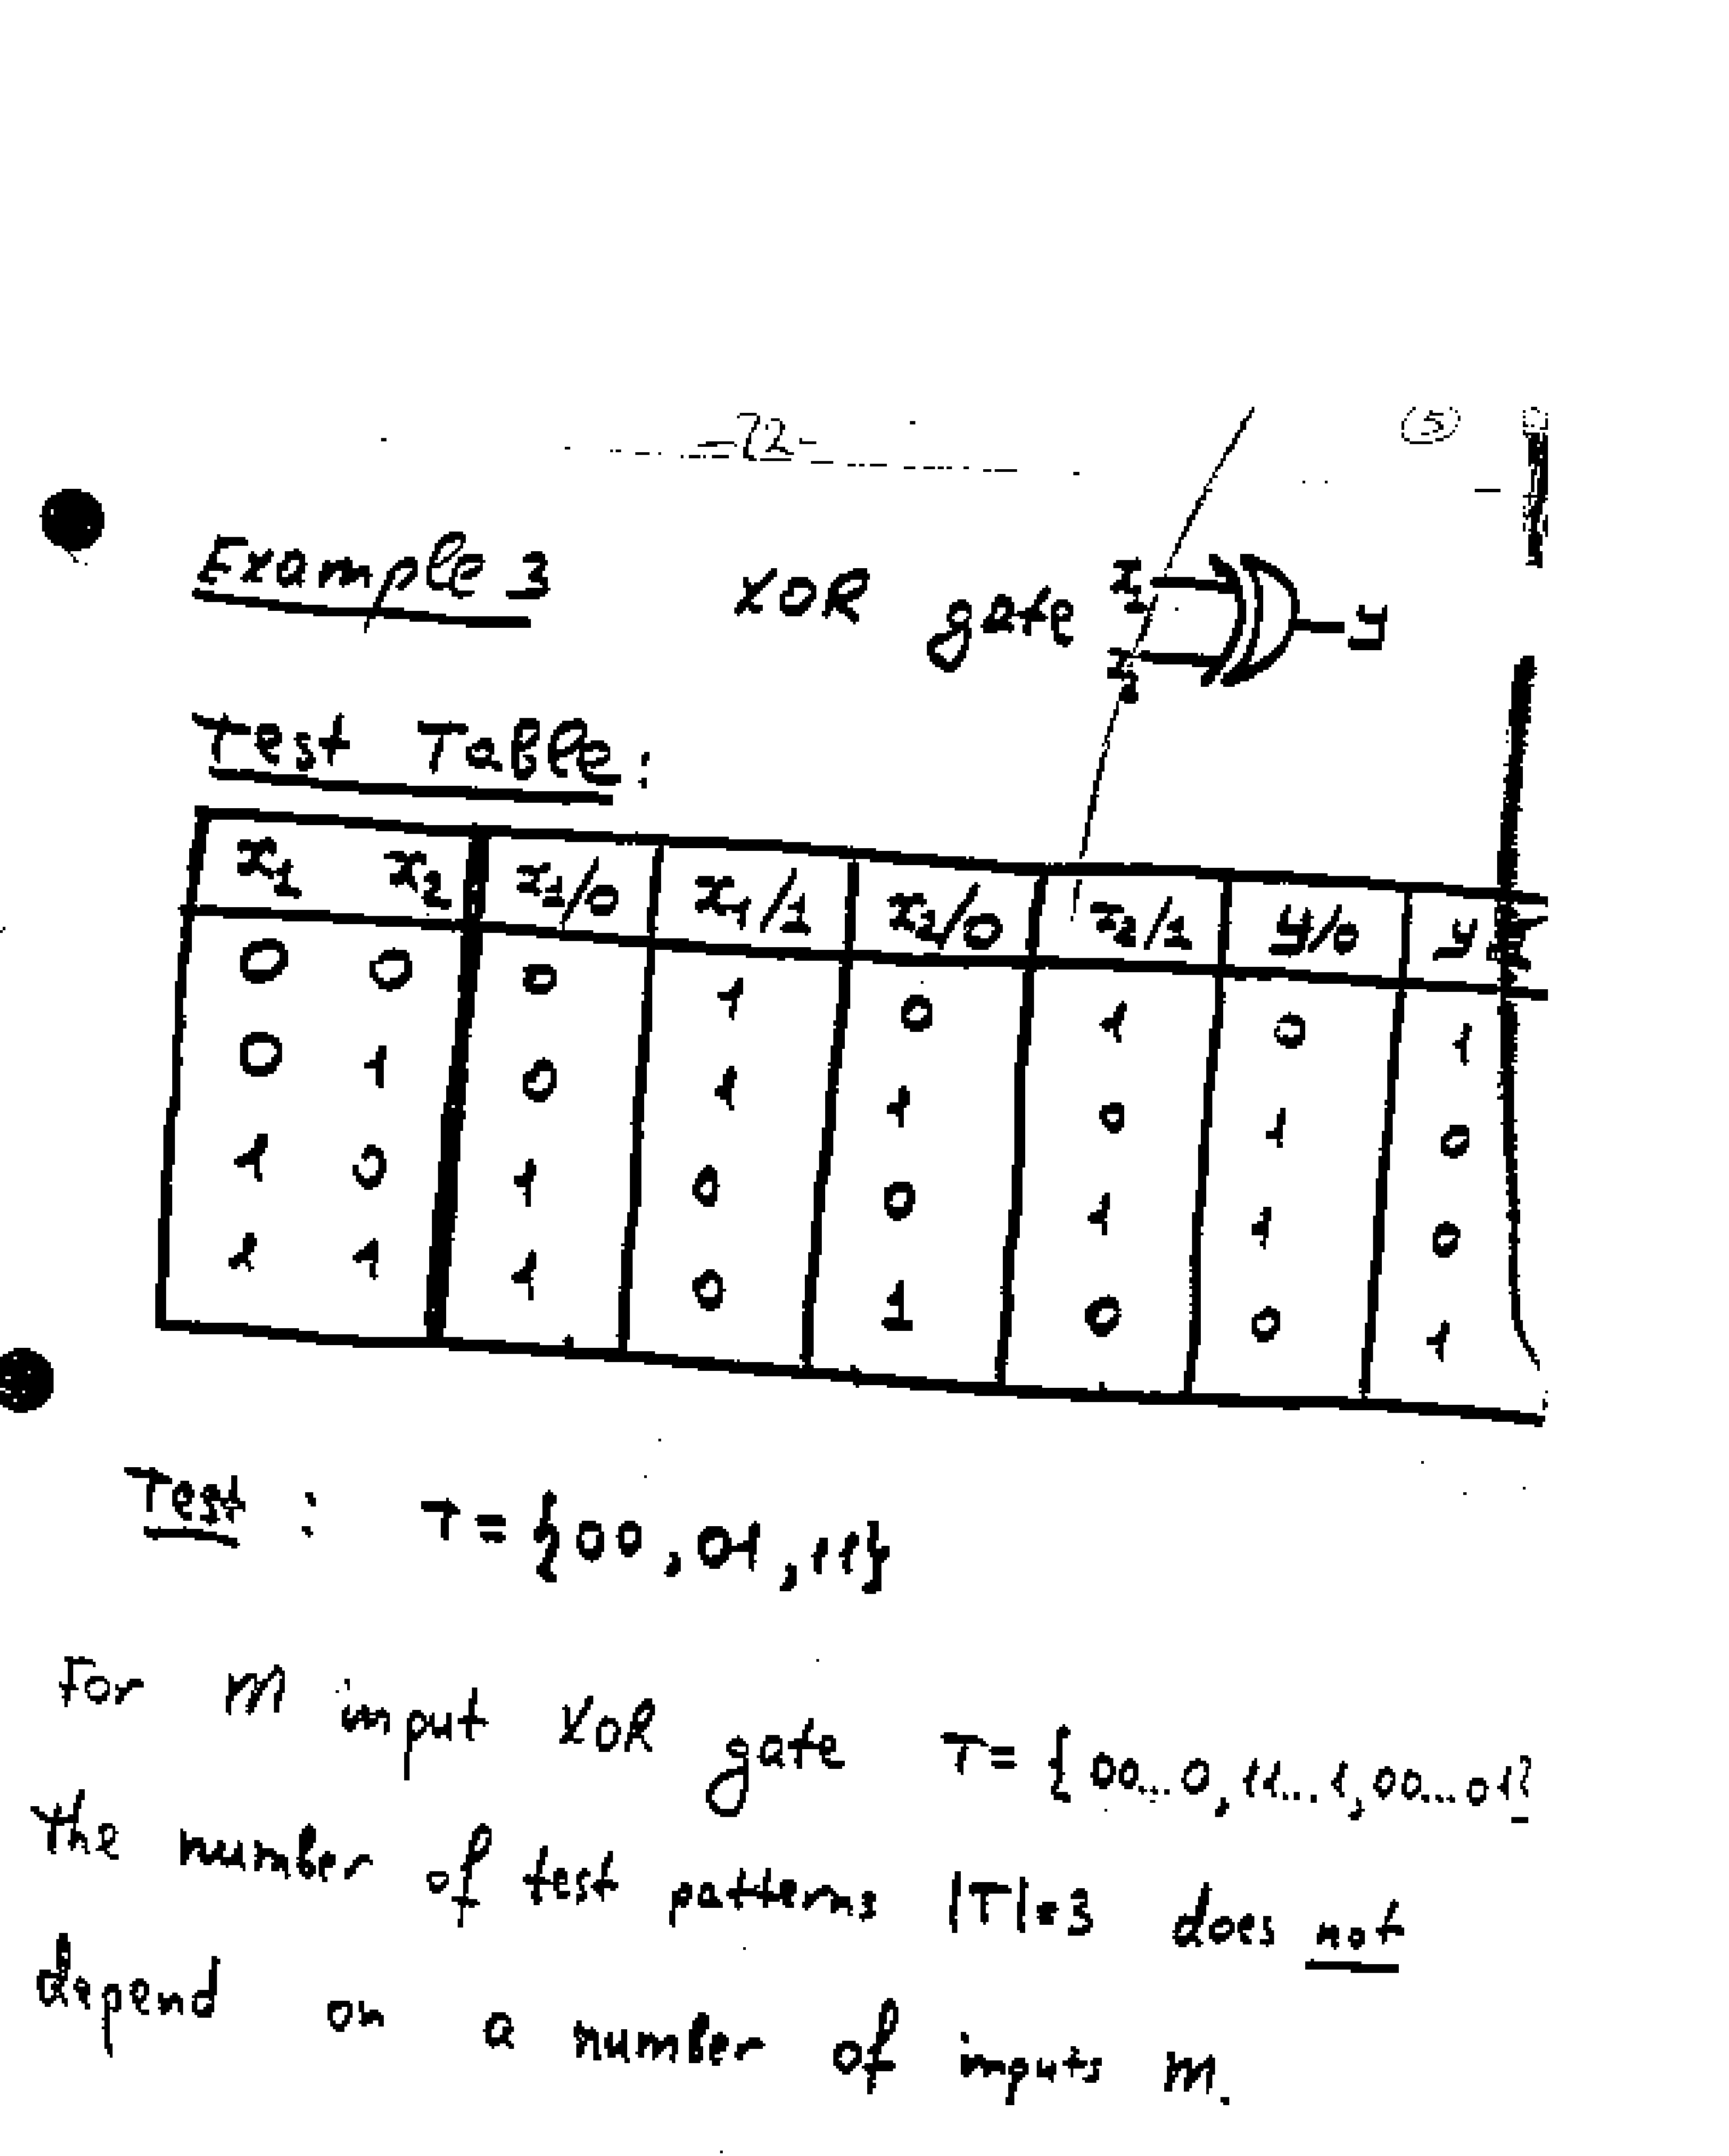 -72-
5
Example 3 XOR gate x1 x2 y
Test Table:
x1 x2 x1/0 x1/1 x2/0 x2/1 y/0 y
0 0 0 1 0 1 0 1
0 1 0 1 1 0 1 0
1 0 1 0 0 1 1 0
1 1 1 0 1 0 0 1
Test : T = {00, 01, 11}
For m input XOR gate T = {00...0, 11...1, 00...01}
the number of test patterns |T|=3 does not
depend on a number of inputs m.